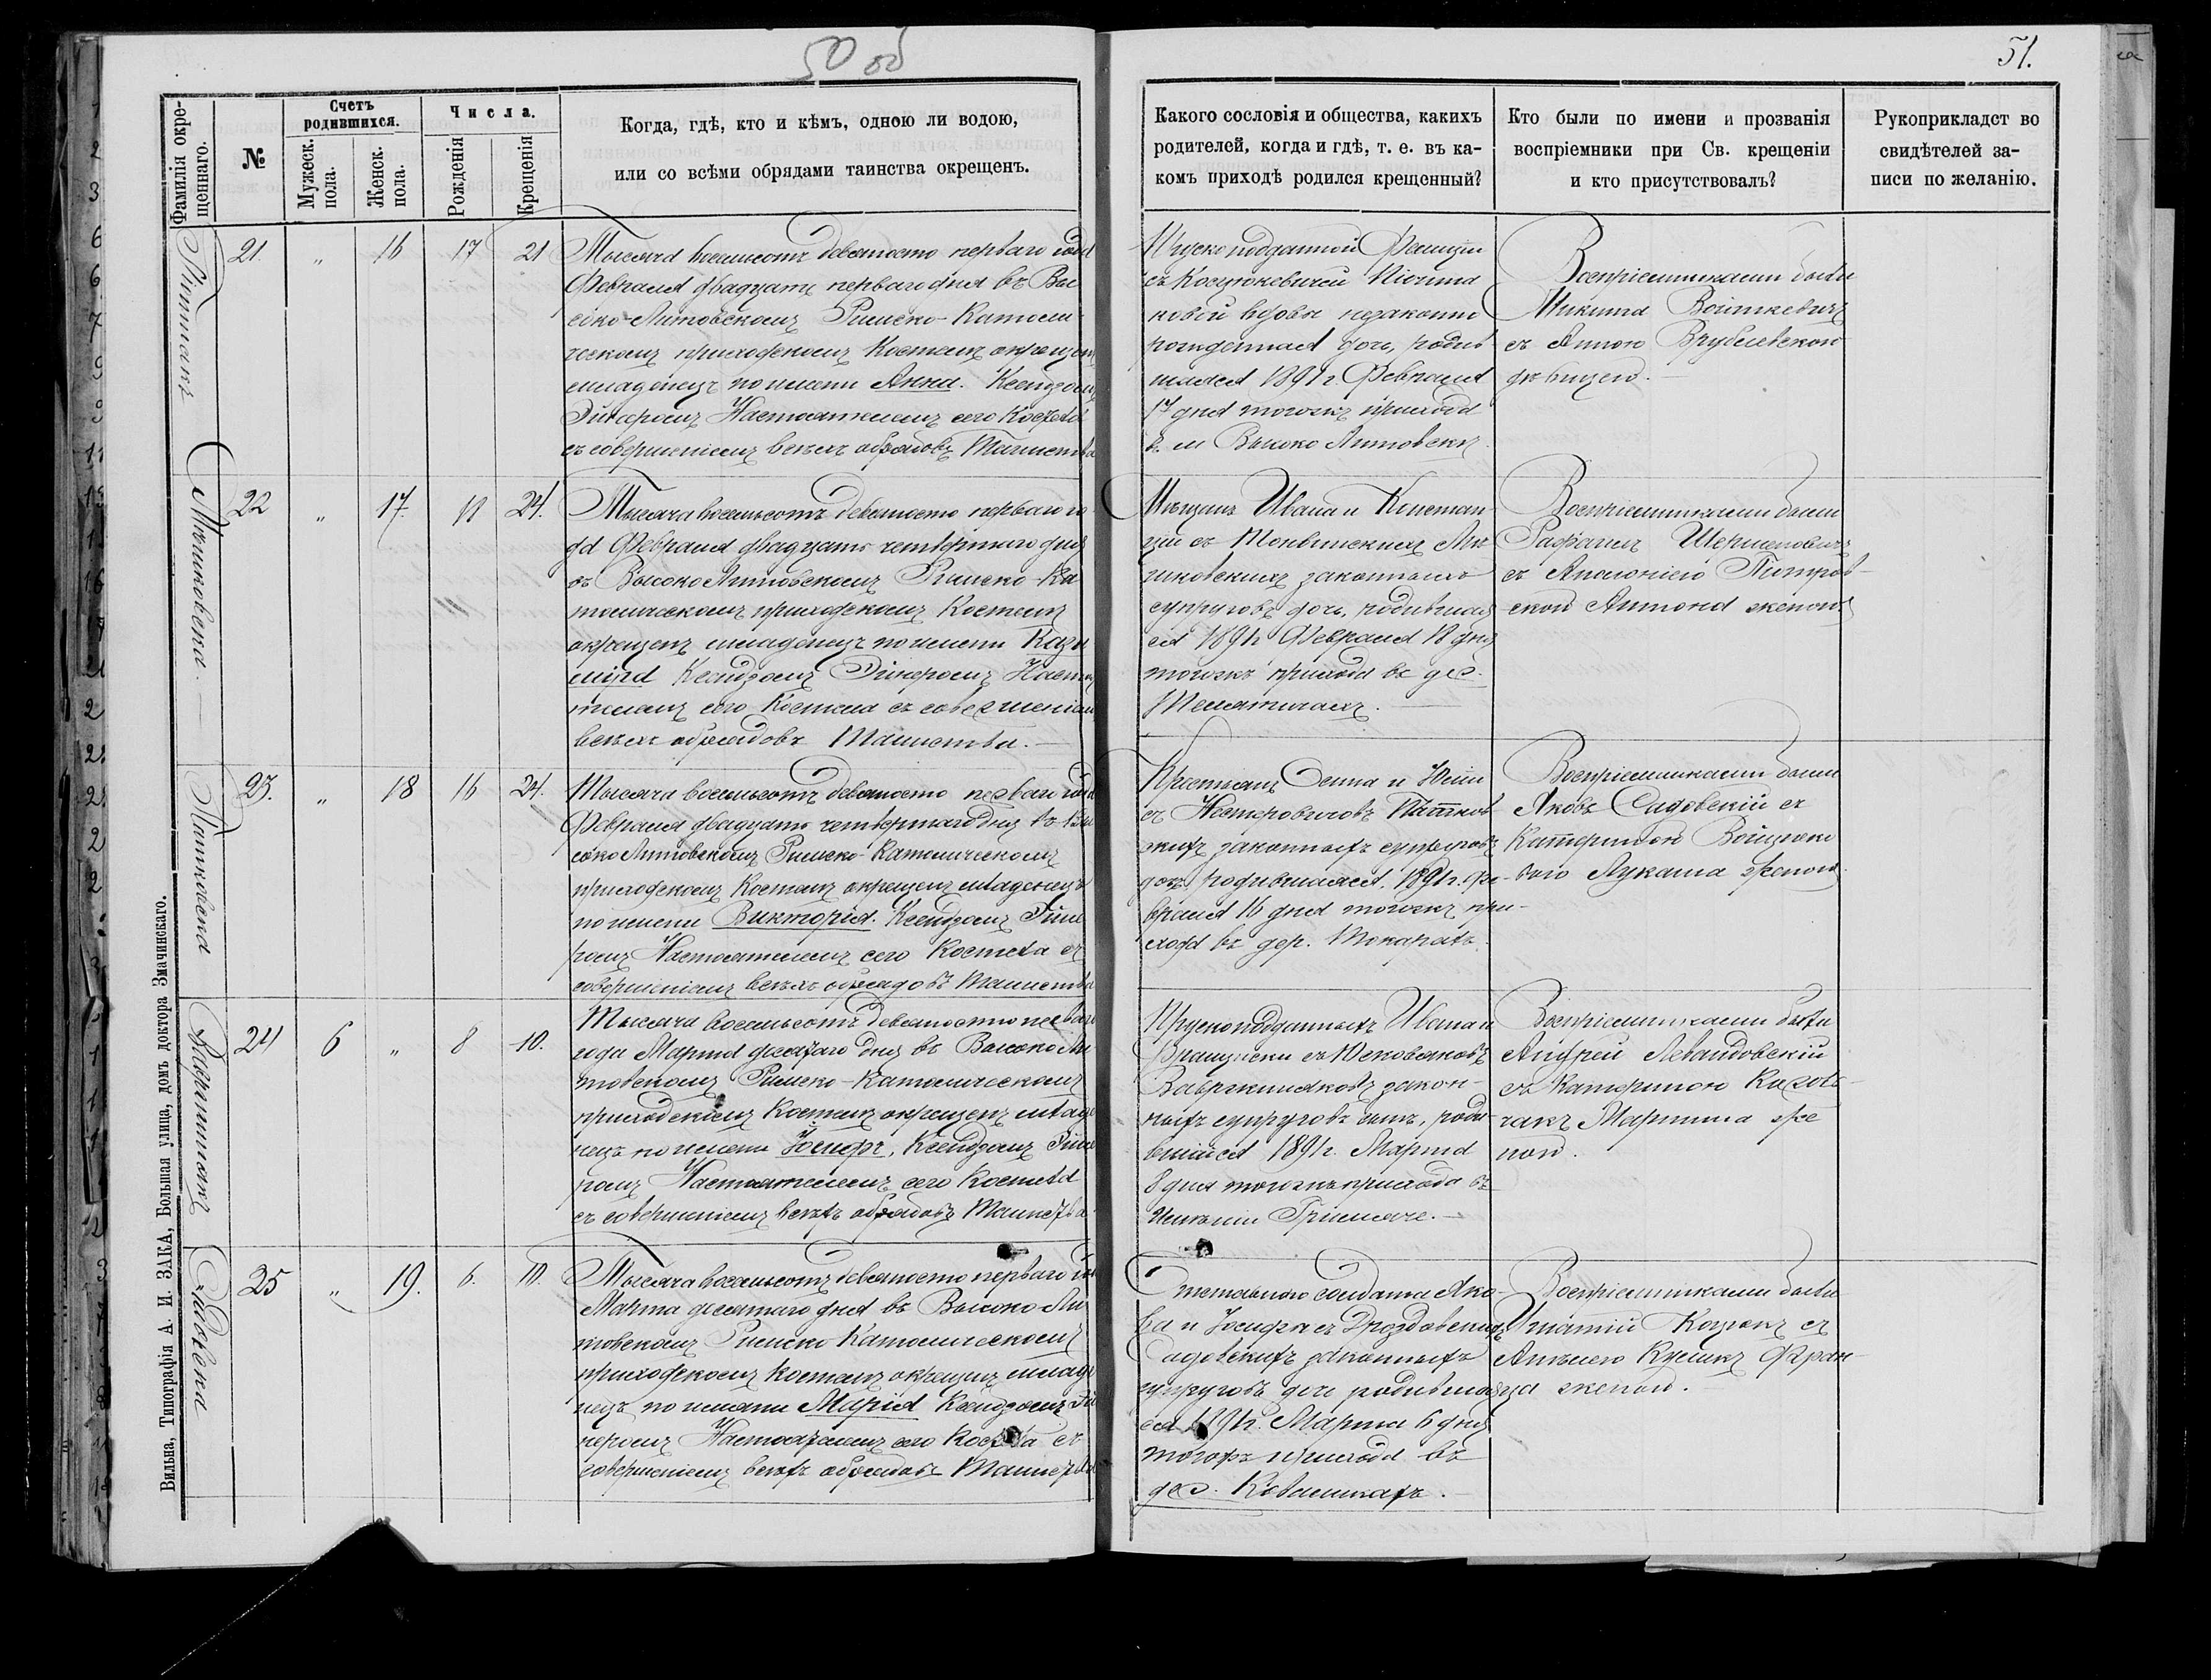 50 об
51.
Фамилія окре-
щеннаго.
№
Счетъ
родившихся.
Мужеск.
пола.
Женск.
пола.
Числа.
Рожденія
Крещенія
Когда, гдѣ, кто и кѣмъ, одною ли водою,
или со всѣми обрядами таинства окрещенъ.
Какого сословія и общества, какихъ
родителей, когда и гдѣ, т. е. въ ка-
комъ приходѣ родился крещенный?
Кто были по имени и прозванія
воспріемники при Св. крещеніи
и кто присутствовалъ?
Рукоприкладст во
свидѣтелей за-
писи по желанію.
21 " 16 17 21
Тысяча восемьсотъ девяносто перваго года
Февраля двадцать перваго дня въ Высо
ско-Литовскомъ Римско-Католи
ческомъ приходскомъ Костелѣ окрещенъ
младенецъ по имени Анна. Ксендзомъ
Настоятелемъ сего Костела
съ совершеніемъ всѣхъ обрядовъ Таинства
Прускоподданной
съ
новой вдовы незаконно
рожденная дочь, родив
шаяся 1891 г. Февраля
17 дня тогожъ прихода
въ м Высоко Литовскѣ.
Воспріемниками были
Никита Войткевичъ
съ Анною Врублевскою
дѣвицею.
Мѣшковска
22 " 17. 18 24.
Тысяча восемьсотъ девяносто перваго го
да Февраля двадцать четвертаго дня
въ Высоко Литовскомъ Римско-Ка
толическомъ приходскомъ Костелѣ
окрещенъ младенецъ по имени Кази
мира Ксендзомъ Настоя
телемъ сего Костела съ совершеніемъ
всѣхъ обрядовъ Таинства.
Мѣщанъ Ивана и Констан
ціи съ Мѣ
шковскихъ законныхъ
супруговъ дочь, родившая
ся 1891 г Февраля 18 дня
тогожъ прихода въ дер.
Воспріемниками были
Рафаилъ
съ Аполоніею Пiотров
ской Антона женою
Пашковска
23. " 18 16 24.
Тысяча восемьсотъ девяносто перваго года
Февраля двадцать четвертаго дня въ Вы
соко Литовскомъ Римско-Католическомъ
приходскомъ Костелѣ окрещенъ младенецъ
по имени Викторія. Ксендзомъ
Настоятелемъ сего Костела съ
совершеніемъ всѣхъ обрядовъ Таинства
Крестьянъ
съ Нестеровичовъ Пашков
скихъ законныхъ супруговъ
дочь родившаяся 1891 г. Фе-
враля 16 дня тогожъ при-
хода въ дер. Токаряхъ.
Воспріемниками были
Яковъ Садовскій съ
Катериною
Лукаша женою
24 6 " 8 10.
Тысяча восемьсотъ девяносто перваго
года Марта десятаго дня въ Высоко Ли
товскомъ Римско-Католическомъ
приходскомъ Костелѣ окрещенъ младе
нецъ по имени Іосифъ, Ксендзомъ
Настоятелемъ сего Костела
съ совершеніемъ всѣхъ обрядовъ Таинства
Прускоподданныхъ Ивана и
Францишки съ
закон-
ныхъ супруговъ сынъ, роди
вшійся 1891 г. Марта
8 дня тогожъ прихода въ
Имѣніи
Воспріемниками были
Андрей Левандовскій
съ Катериною
Мартина же
ною.
Садовска
25 " 19. 6. 10.
Тысяча восемьсотъ девяносто перваго года
Марта десятаго дня въ Высоко-Ли
товскомъ Римско Католическомъ
приходскомъ Костелѣ окрещенъ младе
нецъ по имени Марія Ксендзомъ
Настоятелемъ сего Костела съ
совершеніемъ всѣхъ обрядовъ Таинства
Отставного солдата Яко-
ва и Іосифы съ Дроздовскихъ
Садовскихъ законныхъ
супруговъ дочь родившая
ся 1891 г. Марта 6 дня
тогожъ прихода въ
дер.
Воспріемниками были
Игнатій съ
Анелею Фран-
ца женою.
Вильна, Типографія А. И. ЗАКА, Большая улица, домъ доктора Змачинскаго.